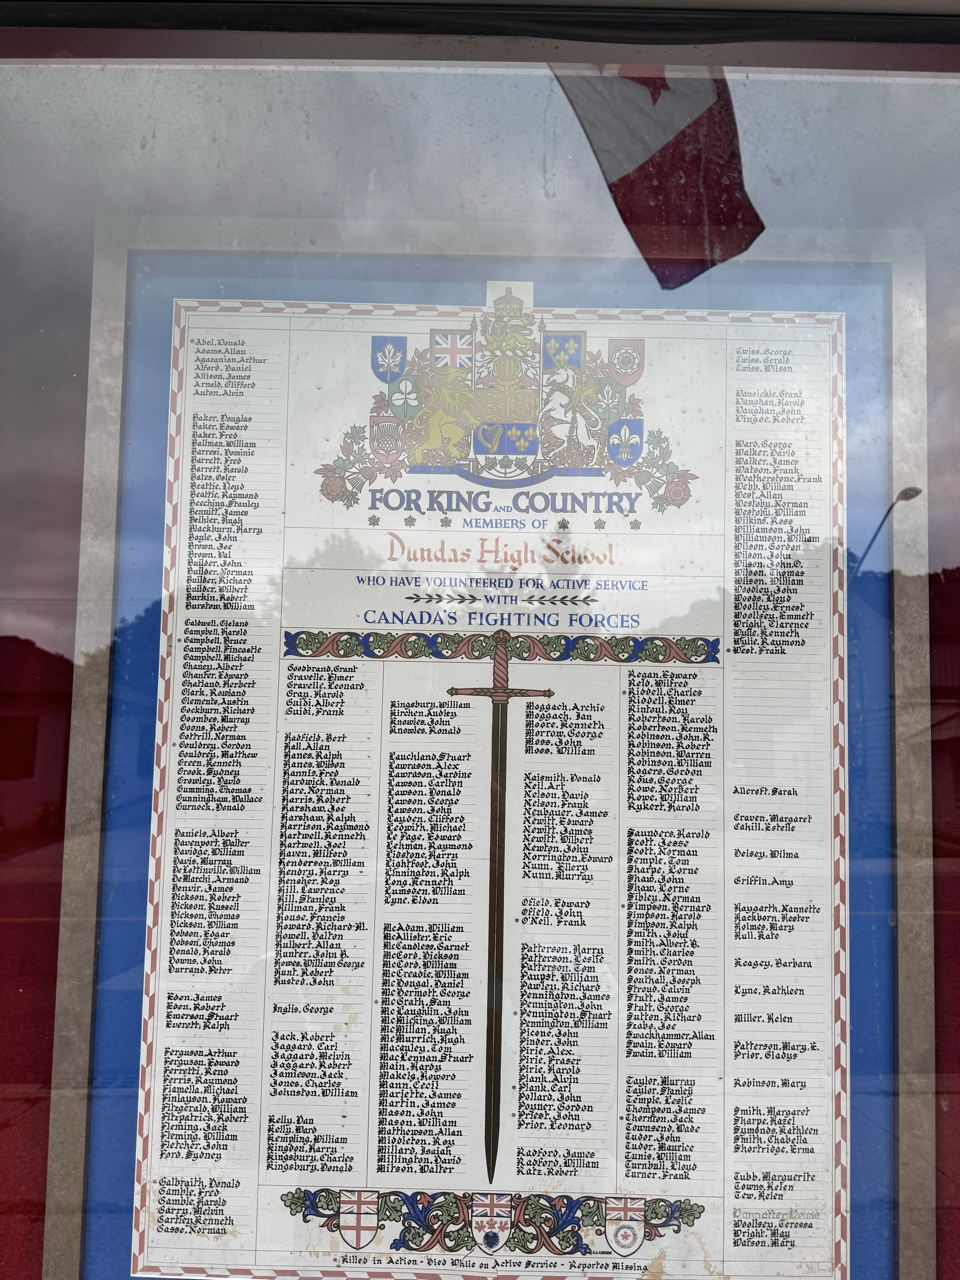 FOR KING AND COUNTRY
MEMBERS OF
Dundas High School
WHO HAVE VOLUNTEERED FOR ACTIVE SERVICE
WITH
CANADA'S FIGHTING FORCES
*Abel, Donald
Adams, Allan
Agazanian, Arthur
Alford, Daniel
Allison, James
Arnold, Clifford
Auton, Alvin
Baker, Douglas
Baker, Edward
Baker, Fred
Ballman, William
Barresi, Dominic
Barrett, Fred
Barrett, Harold
Bates, Osler
Beattie, Lloyd
Beattie, Raymond
Beeching, Stanley
Bennitt, James
Blackburn, Harry
Boyle, John
Brown, Joe
Brown, Val
Builder, John
Builder, Norman
Builder, Richard
Builder, Wilbert
Burkin, Robert
Burstow, William
Caldwell, Cleland
Campbell, Harold
*Campbell, Bruce
Campbell, Michael
Chaney, Albert
Chanter, Edward
Chatland, Herbert
Clark, Rowland
Clements, Austin
Cockburn, Richard
Coombes, Murray
Coons, Robert
Cottrill, Norman
*Couldrey, Gordon
Couldrey, Matthew
Creen, Kenneth
Crook, Sydney
Crowley, David
Cumming, Thomas
Cunningham, Wallace
Curnock, Donald
Daniels, Albert
Davenport, Walter
Davidge, William
Davis, Murray
DeLottinville, William
DeMarchi, Armand
Denvir, James
Dickson, Robert
Dickson, Russell
Dickson, Thomas
Dickson, William
Dobson, Edgar
Dobson, Thomas
Donald, Harold
Downs, John
Durrand, Peter
Eden, James
Eden, Robert
Emerson, Stuart
Everett, Ralph
Ferguson, Arthur
Ferguson, Edward
Ferretti, Reno
Ferris, Raymond
Fiamella, Michael
Finlayson, Howard
Fitzgerald, William
Fitzpatrick, Robert
Fleming, Jack
Fleming, William
Fletcher, John
Ford, Sydney
*Galbraith, Donald
Gamble, Fred
Gamble, Harold
Garry, Melvin
Gartley, Kenneth
Gasse, Norman
Goodbrand, Grant
Gravelle, Elmer
Gravelle, Leonard
Gray, Harold
Guidi, Albert
Guidi, Frank
Hadfield, Bert
Hall, Allan
Hanes, Ralph
Hanes, Wilson
Hannis, Fred
Hardwick, Donald
Hare, Norman
Harris, Robert
Harshaw, Joe
Harshaw, Ralph
Harrison, Raymond
Hartwell, Kenneth
Hartwell, Joel
Haven, Milford
Henderson, William
Hendry, Harry
Hensher, Roy
Hill, Lawrence
Hill, Stanley
Hillman, Frank
House, Francis
Howard, Richard M.
Howell, Dalton
Hulbert, Allan
Hunter, John B.
Howes, William George
Hunt, Robert
Husted, John
Inglis, George
Jack, Robert
Jaggard, Carl
Jaggard, Melvin
Jaggard, Robert
Jamieson, Jack
Jones, Charles
Johnston, William
Kelly, Dan
Kelly, Ward
Kempling, William
Kingdon, Harry
Kingsbury, Charles
Kingsbury, Donald
Kingsbury, William
Kirchen, Audley
Knowles, John
Knowles, Ronald
Lauckland, Stuart
Lawrason, Alex
Lawrason, Jardine
Lawson, Carlton
Lawson, Donald
Lawson, George
Lawson, John
Layden, Clifford
Ledwith, Michael
Le Page, Edward
Lehman, Raymond
Lidstone, Harry
Lightfoot, John
Linnington, Ralph
Long, Kenneth
Lumsden, William
Lyne, Eldon
McAdam, William
McAllister, Eric
McCandless, Garnet
McCord, Dickson
McCord, William
McCreadie, William
McDougal, Daniel
McDermott, George
*McGrath, Sam
McLaughlin, John
McMicking, William
McMillan, Hugh
McMurrich, Hugh
Macauley, Tom
MacLennan, Stuart
Main, Hardy
Makela, Howord
Mann, Cecil
Marjette, James
Martin, James
Mason, John
Mason, William
Matthewson, Allan
Middleton, Roy
Millard, Isaiah
Millington, David
Mitson, Walter
Moggach, Archie
Moggach, Ian
Moore, Kenneth
Morrow, George
Moss, John
Moss, William
Naismith, Donald
Neil, Art
Nelson, David
Nelson, Frank
Neubauer, James
Newitt, Edward
Newitt, James
Newitt, Wilbert
Newton, John
Norrington, Edward
Nunn, Ellery
Nunn, Murray
Ofield, Edward
Ofield, John
*O'Neil, Frank
Patterson, Harry
Patterson, Leslie
Patterson, Tom
Paupst, William
Pawley, Richard
Pennington, James
Pennington, John
*Pennington, Stuart
Pennington, William
Picone, John
Pinder, John
Pirie, Alex
Pirie, Fraser
Pirie, Harold
Plank, Alvin
*Plank, Earl
Pollard, John
Poyner, Gordon
*Priest, John
Prior, Leonard
Radford, James
Radford, William
Ratz, Robert
Regan, Edward
Reid, Wilfred
*Riddell, Charles
Riddell, Elmer
Rintoul, Roy
Robertson, Harold
Robertson, Kenneth
Robinson, John R.
Robinson, Robert
Robinson, Warren
Robinson, William
Rogers, Gordon
Rous, George
Rowe, Norbert
Rowe, William
Rykert, Harold
Saunders, Harold
Scott, Jesse
Scott, Norman
Semple, Tom
Sharpe, Lorne
Shaw, John
Shaw, Lorne
Sibley, Norman
*Simpson, Bernard
Simpson, Harold
Simpson, Ralph
Smith, John
Smith, Albert B.
Smith, Charles
Smith, Gordon
Sones, Norman
Southall, Joseph
Stroud, Calvin
Stutt, James
Stutt, George
Sutton, Richard
Szabs, Joe
Swackhammer, Allan
Swain, Edward
Swain, William
Taylor, Murray
Taylor, Stanley
Temple, Leslie
Thompson, James
*Thornton, Jack
Townsend, Wade
Tudor, John
Tudor, Maurice
Tunis, William
Turnbull, Lloyd
Turner, Frank
Twiss, George
Twiss, Gerald
Twiss, Wilson
Vansickle, Grant
Vaughan, Harold
Vaughan, John
Vingoe, Robert
Ward, George
Walker, David
Walker, James
Watson, Frank
Weatherstone, Frank
Webb, William
West, Allan
Westoby, Norman
Westoby, William
Wilkins, Ross
Williamson, John
Williamson, William
Wilson, Gordon
Wilson, John
Wilson, John O.
Wilson, Thomas
Wilson, William
Woodley, John
Woods, Lloyd
Woolley, Ernest
Woolley, Emmett
Wright, Clarence
Wylie, Kenneth
Wylie, Raymond
*West, Frank
Allcroft, Sarah
Craven, Margaret
Cahill, Estelle
Delsey, Wilma
Griffin, Amy
Haygarth, Nannette
Hackborn, Hester
Holmes, Mary
Hull, Kate
Keagey, Barbara
Lyne, Kathleen
Miller, Helen
Patterson, Mary E.
Prior, Gladys
Robinson, Mary
Smith, Margaret
Sharpe, Hazel
Symonds, Kathleen
Smith, Chabella
Shortridge, Erma
Tubb, Marguerite
Towns, Helen
Tew, Helen
Woollsey, Teressa
Wright, May
Watson, Mary
*Killed in Action - Died While on Active Service - Reported Missing